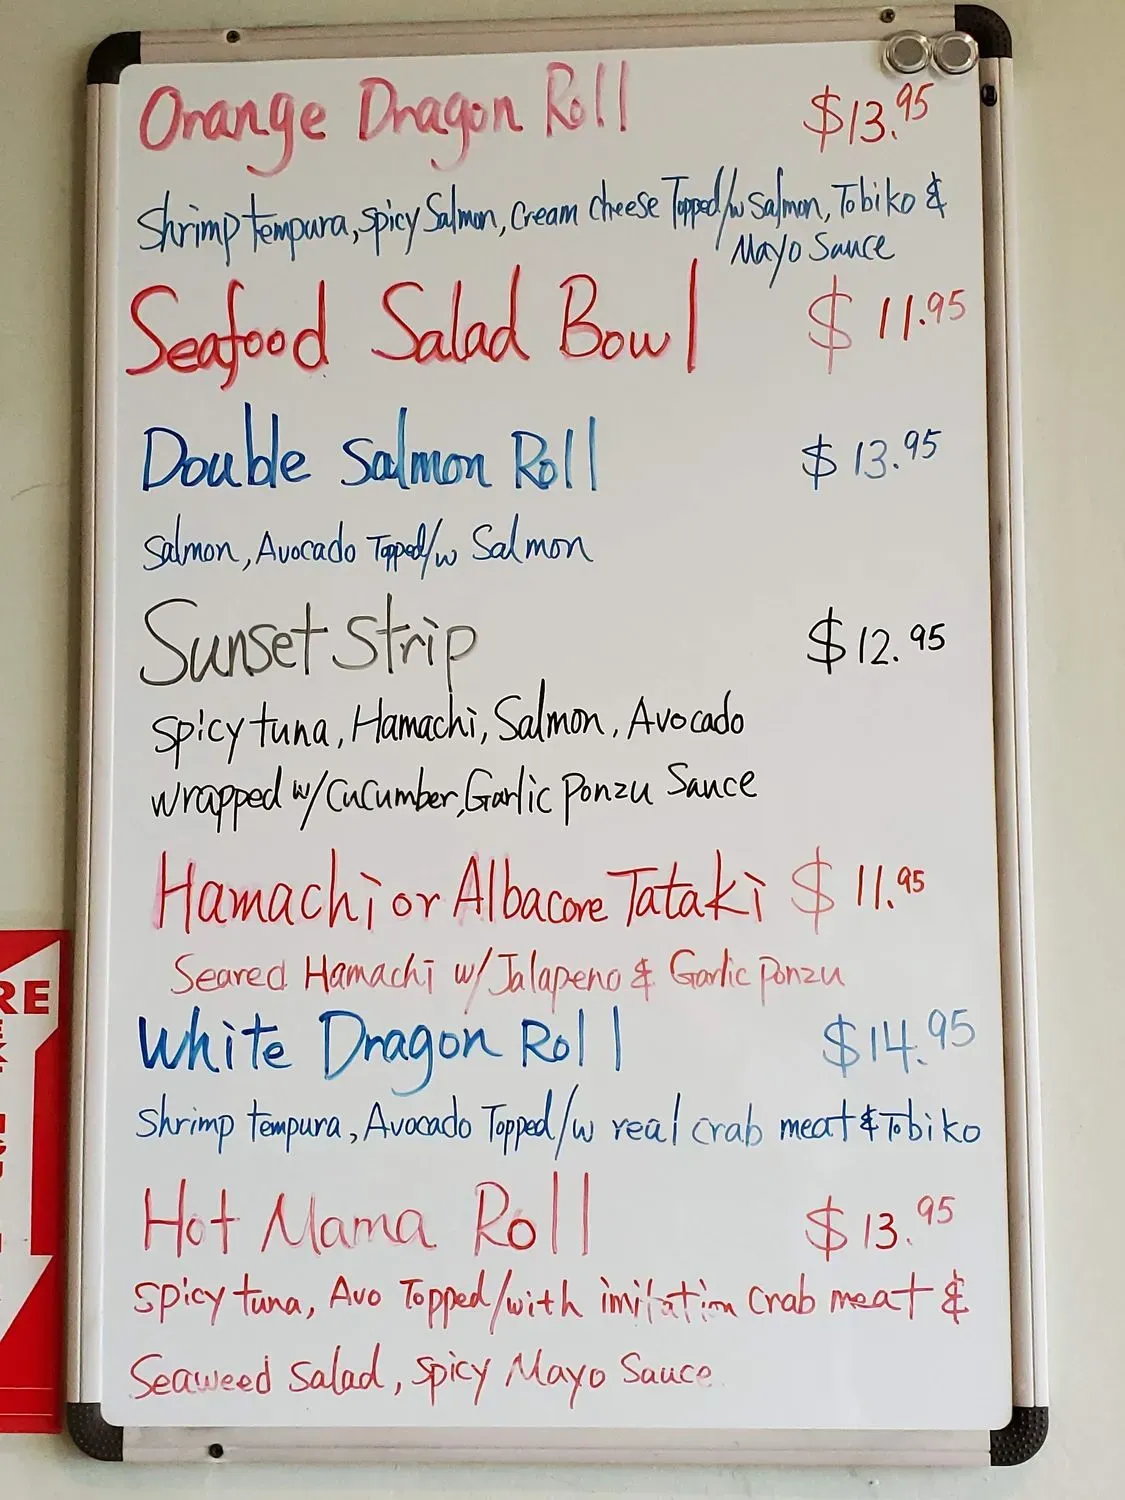 Orange Dragon Roll $13.95
Shrimp tempura, spicy Salmon, Cream cheese Topped/w Salmon, Tobiko &
Mayo Sauce
Seafood Salad Bowl $11.95
Double Salmon Roll $13.95
Salmon, Avocado Topped/w Salmon
Sunset Strip $12.95
spicy tuna, Hamachi, Salmon, Avocado
wrapped w/cucumber, Garlic Ponzu Sauce
Hamachi or Albacore Tataki $11.95
Seared Hamachi w/Jalapeno & Garlic Ponzu
White Dragon Roll $14.95
Shrimp tempura, Avocado Topped/w real crab meat & Tobiko
Hot Mama Roll $13.95
Spicy tuna, Avo Topped/with imitation Crab meat &
Seaweed Salad, Spicy Mayo Sauce
RE